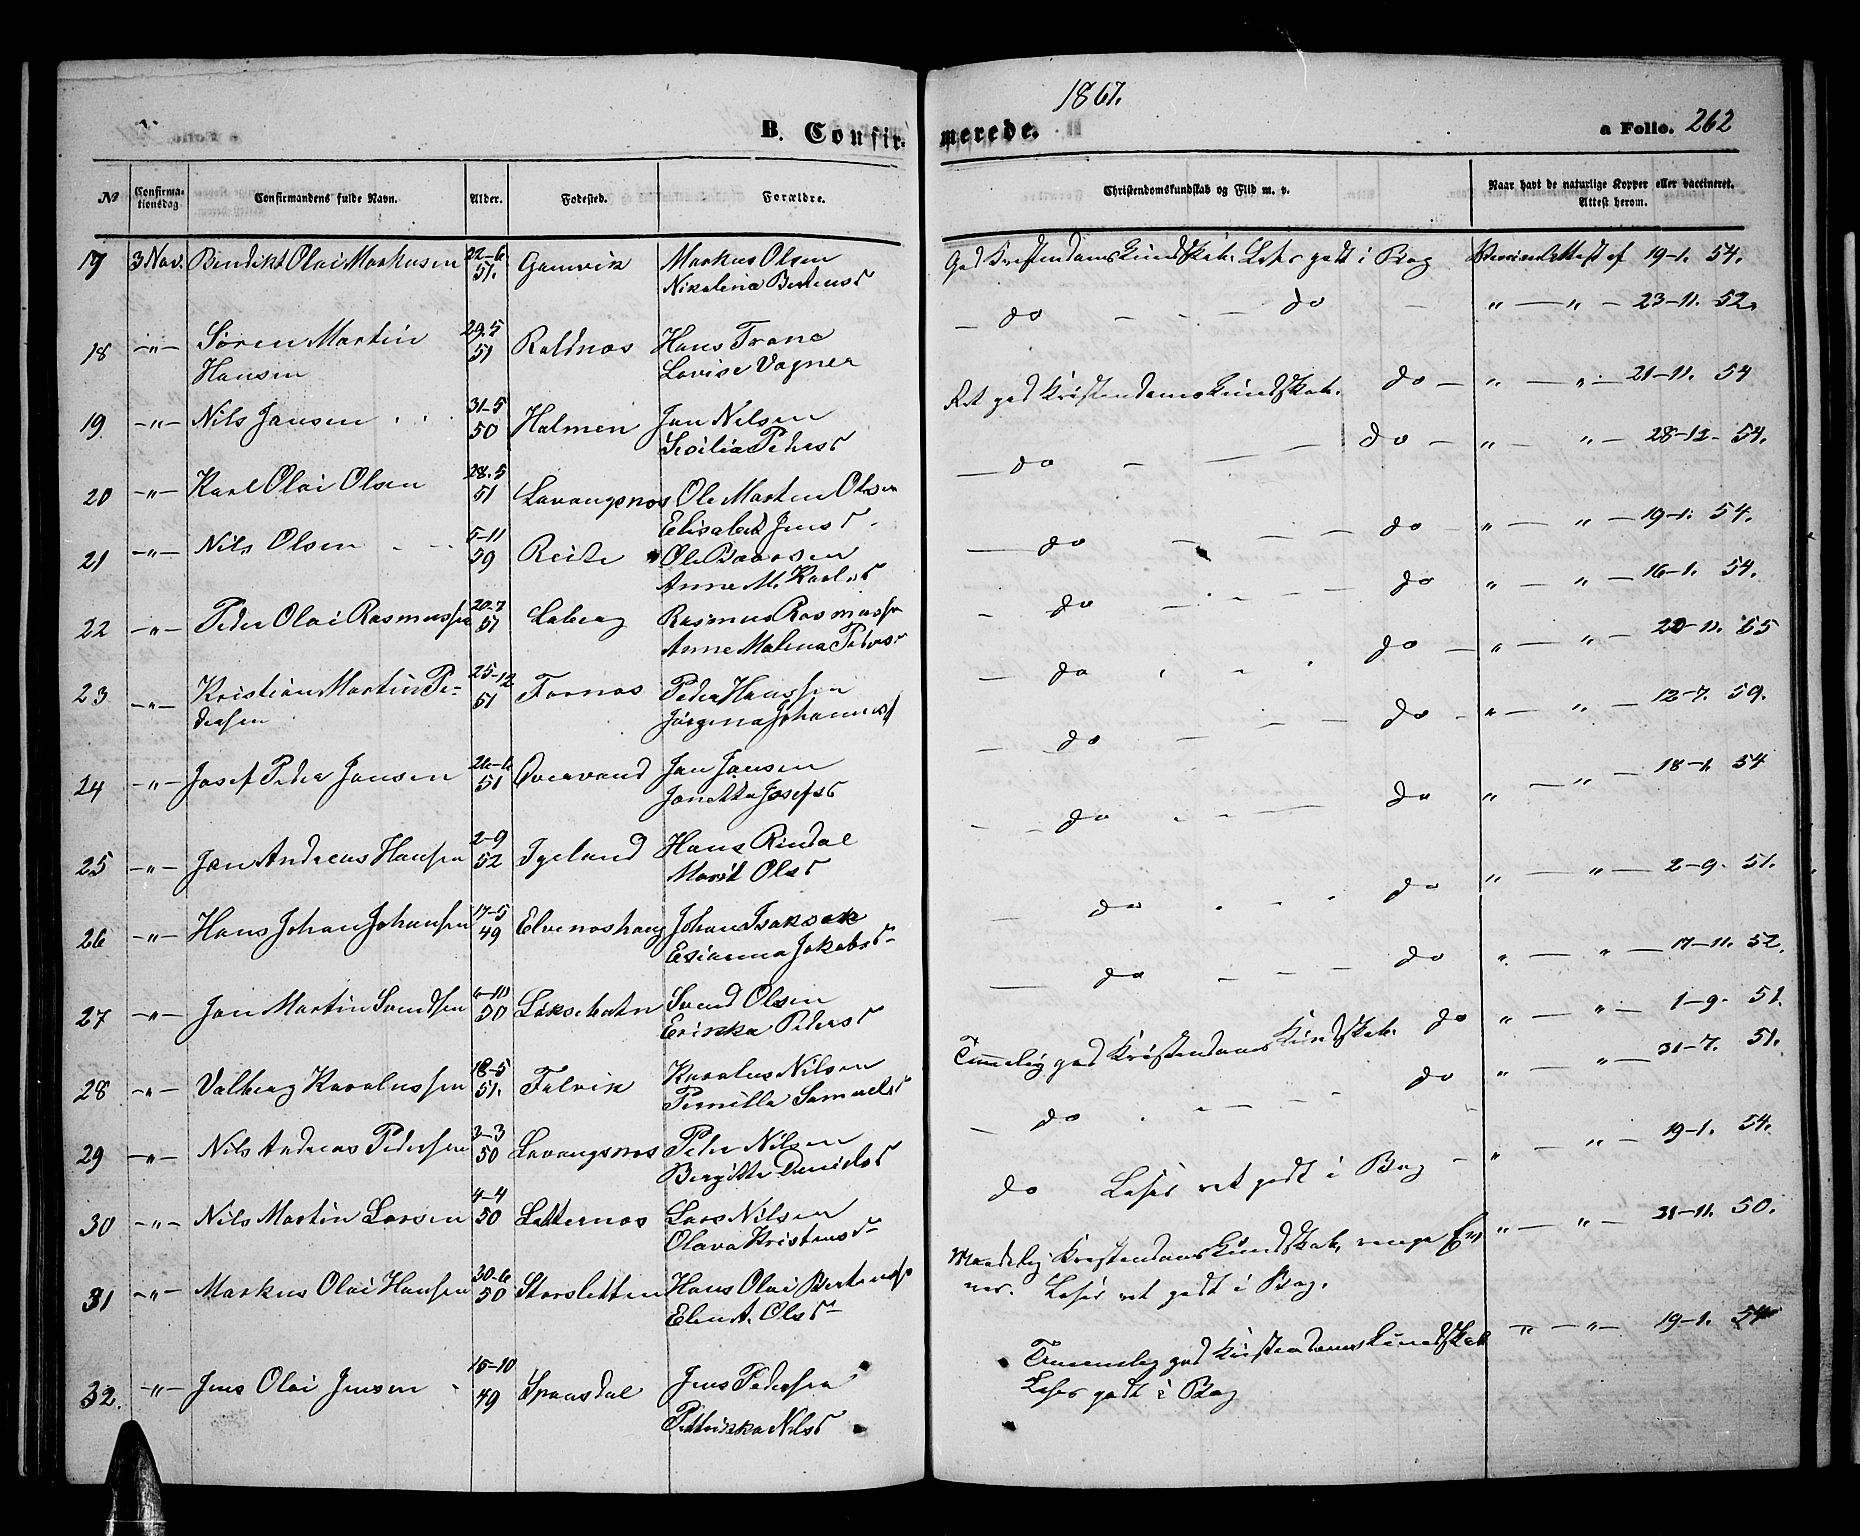 1867.
B. Confirmerede.
a Folio. 262
No Confirmationsdag Confirmandens fulde Navn. Alder. Fodested. Forældre. Christendomskundskab og Flid m. v. Naar havt de naturlige Kopper eller vaccineret. Attest herom.
17 3 Nov. Bendikt Olai Markusen 22-6 51. Gamvik Markus Olsen God Kristendomskundskab. Læser godt i Bog af 19-1. 54.
Nikoline Bertensd
— do — — do — „ — „ — 23-11. 52.
18 —„— Søren Martin 29.5 51 Roldnæs Hans Trane
Hansen Lovise Vagner
Ret god Kristendomskundskab. do — „ — „ — 21-11. 54
19. —„— Nils Jansen 31-5 50 Holmen Jan Nilsen
Pedersd
— do — — do — „ — „ — 28-12- 54.
20 —„— Karl Olai Olsen 28.5 51 Lavangsnæs Ole Martin Olsen
Elisabet Jensd
— do — — do — „ — „ — 19-1. 54.
21 —„— Nils Olsen 5-11 59 Ole
Anne M. Karlsd
— do — do „ — „ — 16-1. 54.
22 —„— Peder Olai Rasmussen 20-7 51 Laberg Rasmus Rasmussen
Anne Malena Pedersd
— do do — „ — „ — 20-11. 65
23 —„— Kristian Martin Pe- 25-12 51 Fornæs Peder Hanssen
dersen Jørgina Johannesd
— do — — do — „ — „ — 12-7. 59.
24 —„— Josef Peder Jansen 51 Overvand Jan Jansen
Janetta Josefsd
— do — do „ — „ — 18-1. 54
25 —„— Jan Andreas Hansen 2-9 52 Igeland Hans Rindal
Marit Olsd
— do do „ — „ — 2-9. 51.
26 —„— Hans Johan Johansen 17-5 49 Elvenæshaug Johan Isaksen
Jakobsd
— do — do „ — „ — 17-11. 52.
27 —„— Jan Martin Svendsen 50 Svend Olsen
Erikka Pedersd
Temmelig god Kristendoms Kundskab. do „ — „ — 1-9. 51.
28 —„— Valberg Karolussen 18-5 51. Karolus Nilsen
Pernilla Samuelsd
— do do „ — „ — 31-7. 51.
29 —„— Nils Andreas Pedersen 3-3 50 Lavangsnæs Peder Nilsen
Birgitte Danielsd
do Læser ret godt i Bog — „ — „ — 19-1. 54.
30 —„— Nils Martin Larsen 4-4 50 Lars Nilsen
Olava Kristensd
Maadelig Kristendomskundskab, ringe Ev- „ — „ — 31-11. 50.
ner. Læser ret godt i Bog.
31 —„— Markus Olai Hansen 30-6 50 Storsletten Hans Olai Bertensen
Elen A. Olsd
Temmelig god Kristendomskundskab „ — „ — 19-1. 54
Læser godt i Bog
32. —„— Jens Olai Jensen 15-10 49 Spansdal Jens Pedersen
Petrikka Nilsd